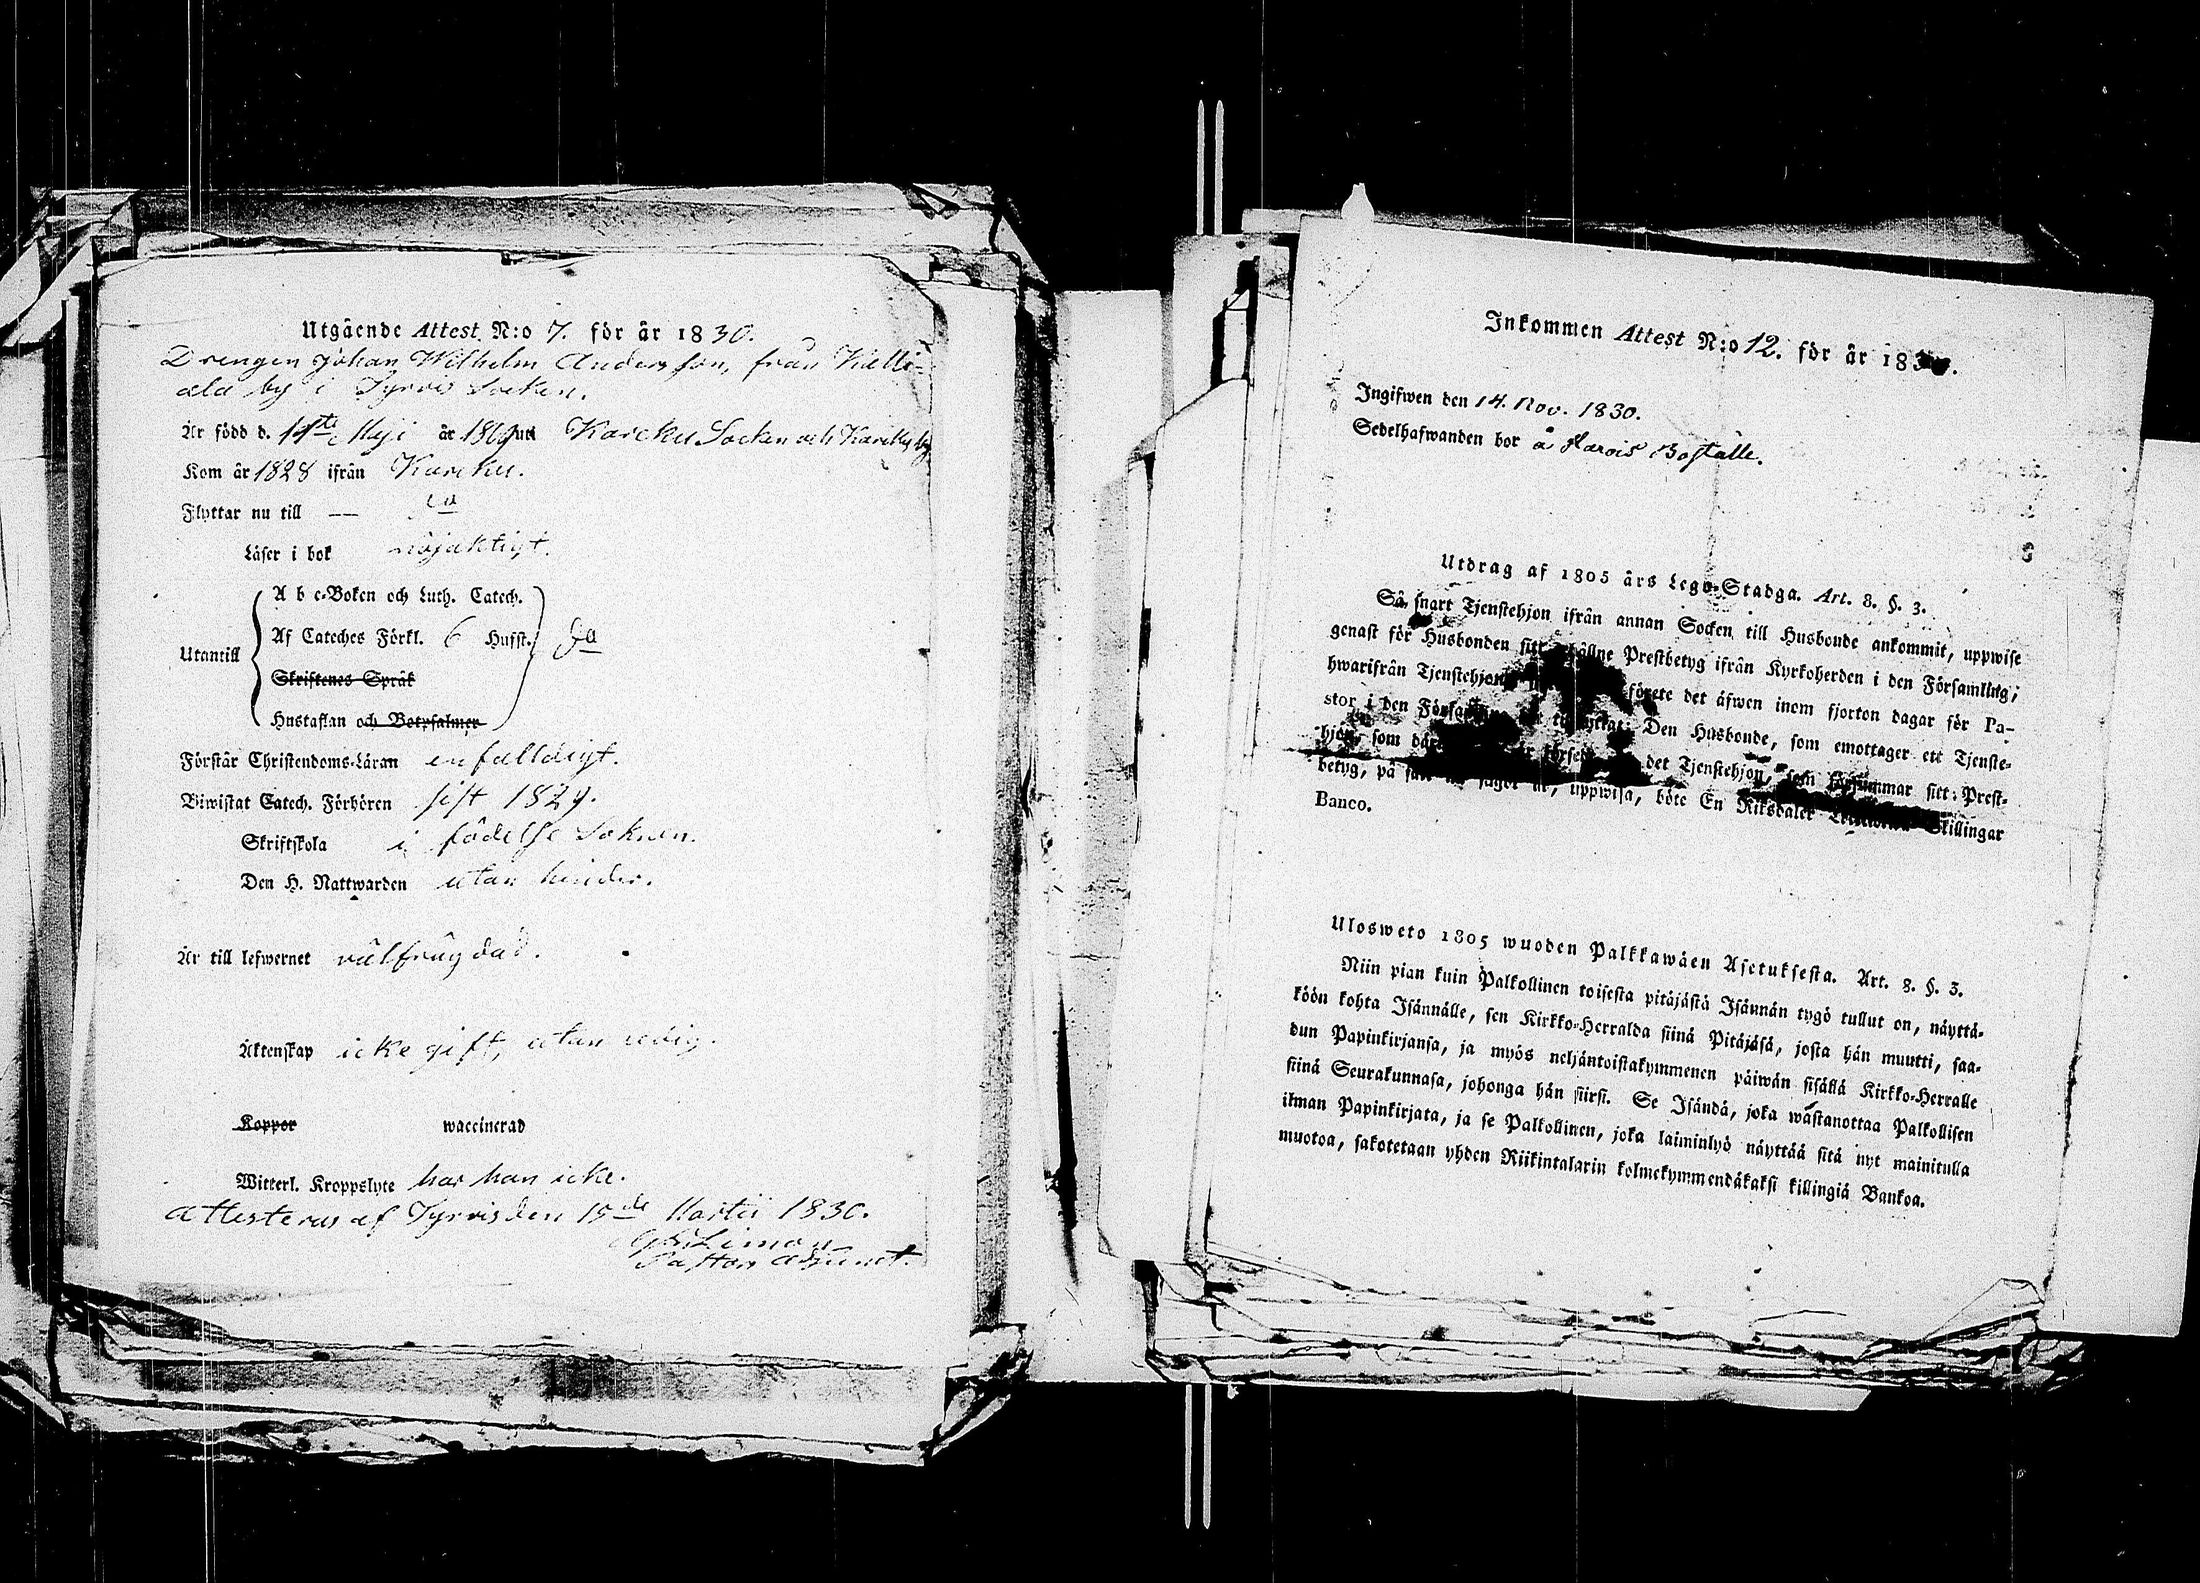 Utgående Attest N:o 7. för år 1830.
Drengen Johan Wilhelm Andersson, från Kalli-
ala by i Tyrvis Socken.
Är född d. 11te Maji år 1809 uti Karcku Socken och Karcku by
Kom år 1828 ifrån Karcku.
Flyttar nu till —
Läser i bok nöjaktigt.
A b c-Boken och Luth. Catech.
Af Cateches Förkl. 6 Hufst. Ja
Utantill
Skriftenes Språk
Hustaflan och Botpsalmer
Förstår Christendoms-Läran enfaldigt.
Biwistat Catech. Förhören sist 1829.
Skriftskola i födelse Soknen.
Den H. Nattwarden utan hinder.
Är till lefwernet välfrägdad.
Äktenskap icke gift, utan ledig.
Koppor waccinerad
Witterl. Kroppslyte har han icke.
Attesteras af Tyrvis den 15de Martii 1830.
Limon
Pastors Adjunct.
Inkommen Attest N:o 12. för år 1830.
Ingifwen den 14. Nov. 1830.
Sedelhafwanden bor å Karois Boställe.
Utdrag af 1805 års Lego-Stadga. Art. 8. §. 3.
Så snart Tjenstehjon ifrån annan Socken till Husbonde ankommit, uppwise
genast för Husbonden sitt erhållne Prestbetyg ifrån Kyrkoherden i den Församling,
hwarifrån Tjenstehjon förete det äfwen inom fjorton dagar för Pa-
stor i den Den Husbonde, som emottager ett Tjenste-
hjon, som det Tjenstehjon, som försummar sitt Prest-
betyg, på uppwisa, böte En Riksdaler Skillingar
Banco.
Ulosweto 1805 wuoden Palkkawäen Asetuksesta. Art. 8. §. 3.
Niin pian kuin Palkollinen toisesta pitäjästä Isännän tygö tullut on, näyttä-
köön kohta Isännälle, sen Kirkko-Herralda siinä Pitäjäsä, josta hän muutti, saa-
dun Papinkirjansa, ja myös neljäntoistakymmenen päiwän sisällä Kirkko-Herralle
siinä Seurakunnasa, johonga hän siirsi. Se Isändä, joka wastanottaa Palkollisen
ilman Papinkirjata, ja se Palkollinen, joka laiminlyö näyttää sitä nyt mainitulla
muotoa, sakotetaan yhden Riikintalarin kolmekymmendäkaksi killingiä Bankoa.